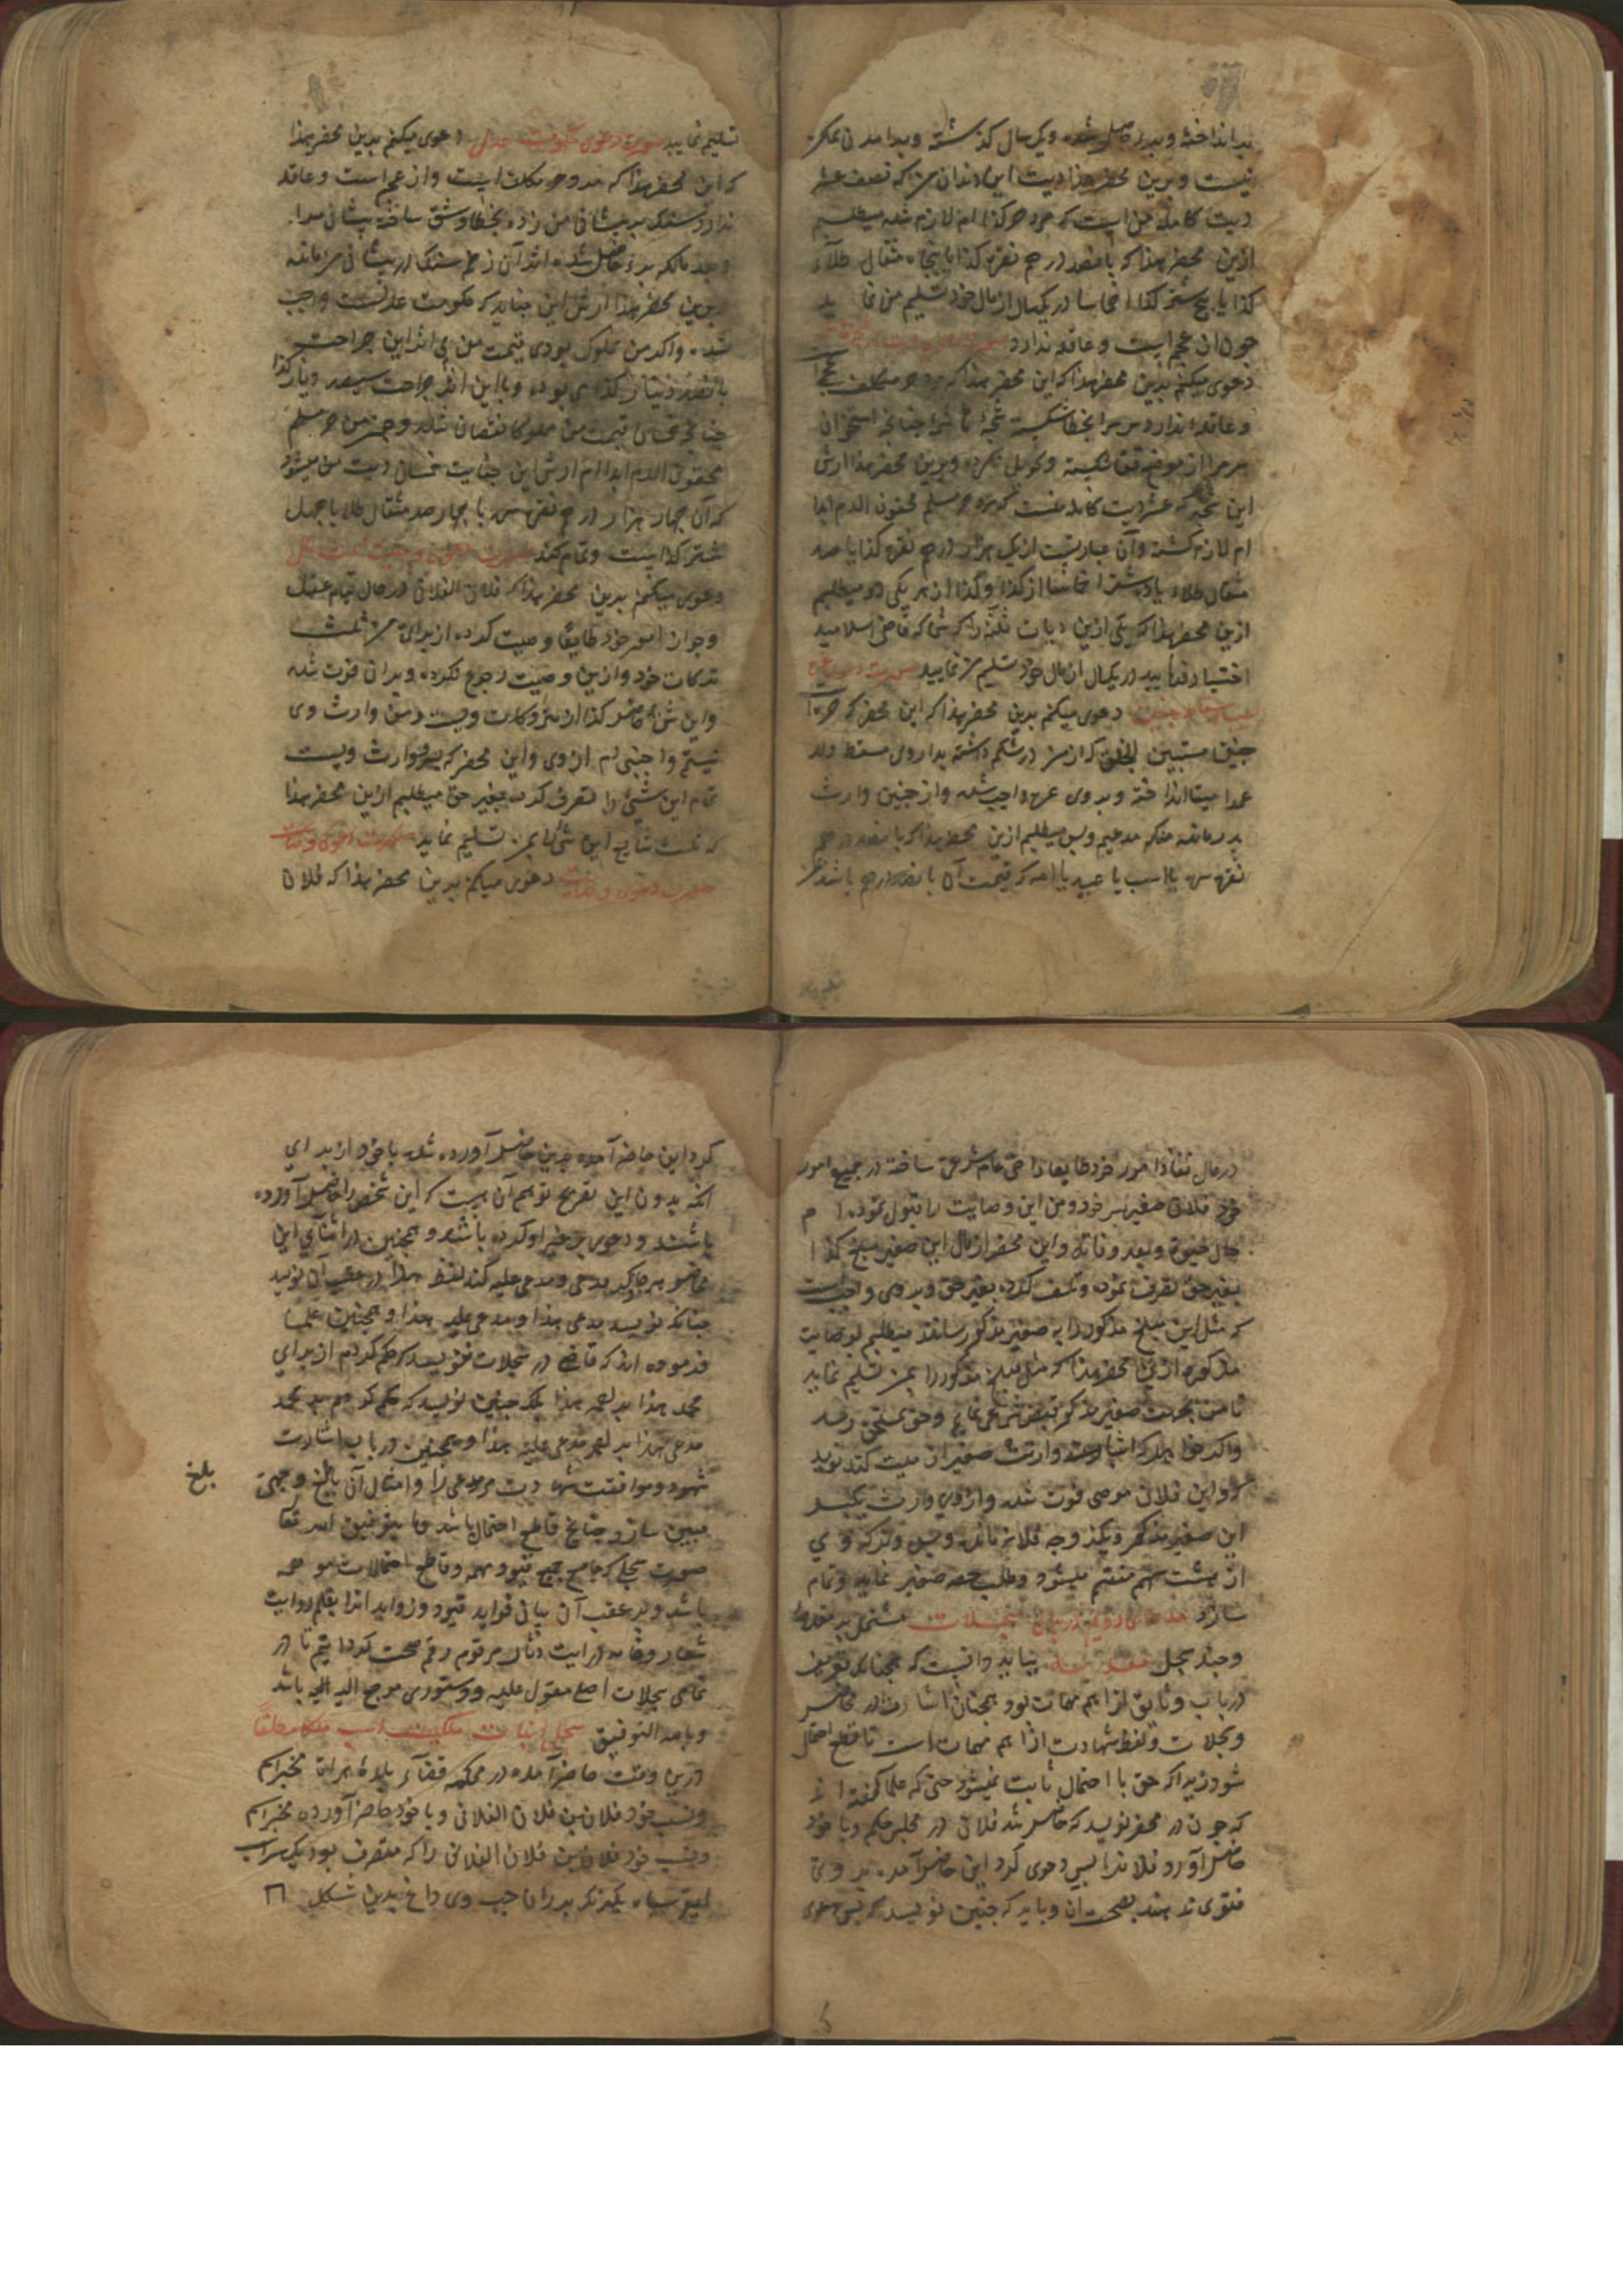 بد انداخته و بدرد حاصل شده و یک سال گذشته و بدل آمدنی مکرر
نیست و برین محضر هذا دیت این دندان من که نصف عشر
دیت کامله من است که مرد حر کذا ام لازم شده میطلبم
ازین محضر هذا که پانصد درهم نقره کذا یا پنجاه مثقال طلاء
کذا یا پنج شتر کذا اخماسا در یکسال از مال خود تسلیم من نماید
چون از عجم است و عاقله ندارد
دعوی میکنم بدین محضر هذا که این محضر هذا که مرد حر مکلف
و عاقله ندارد سر مرا بخطا شکسته شجه چنانچه استخوان
سر مرا از موضع شکسته و تحویل نکرده و برین محضر هذا ارش
این شجه که عشر دیت کامله منست که مرد حر مسلم محقون الدم ابدا
ام لازم گشته و آن عبارتست از یک هزار درهم نقره کذا یا صد
مثقال طلاء یا ده شتر اخماسا از کذا و کذا از هر یکی دو میطلبم
ازین محضر هذا که یکی ازین دیات ثلثه را که قاضی اسلام
اختیار فرمایید در یکسال از مال خود تسلیم من نمایید
دعوی میکنم بدین محضر هذا که این محضر که حره
جنین مستبین الخلق که از من در شکم داشته بداروی مسقط ولد
عمدا میتا انداخته و بر وی غره واجب شده و از جنین وارث
پدر مانده منکه مدعیم و بس میطلبم ازین محضر هذا که پانصد درهم
نقره یا اسب یا عبد یا امه که قیمت آن پانصد درهم باشد
تسلیم نماید صورت دعوی حکومت عدل دعوی میکنم بدین محضر هذا
که این محضر هذا که مرد حر مکلف است و از عجم است و عاقله
ندارد سنگی بر پیشانی من زده بخطا و شق ساخته پیشانی مرا
و بعد مالکه بدرد حاصل شده اثر آن زخم سنگ در پیشانی من مانده
برین محضر هذا ارش این جنایه که حکومت عدلست واجب
شده و اگر من مملوک بودی قیمت من بی اثر این جراحت
پانصد دینار کذا می بود و با این اثر جراحت سیصد دینار کذا
قیمت من مملوکا نقصان شده و چون من حر مسلم
محقون الدم ابدا ام ارش این جنایت خمسان دیت من میشود
که آن چهار هزار درهم نقره یا چهار صد مثقال طلا یا چهل
شتر کذا است و تمام کند صورت دعوی وصیت ثلث مال
دعوی میکنم بدین محضر هذا که فلان الفلانی در حال قیام عقل
و جواز امور خود طایعا وصیت کرده از برای من ثلث
ترکات خود و ازین وصیت رجوع نکرده و بران فوت شده
و این شیء حاضر کذا از متروکات ویست و من وارث وی
نیستم و اجنبی ام از وی و این محضر که پسر وارث ویست
تمام این شیء را تصرف کرده بغیر حق میطلبم ازین محضر هذا
که ثلث شایع این شیء را بمن تسلیم نماید صورت دعوی وصایت
دعوی میکنم بدین محضر هذا که فلان
در حال نفاذ امور خود طایعا وصی عام شرعی ساخته در جمیع امور
خود فلان صغیر پسر خود و من این وصایت را قبول نموده ام
حال حیوة و بعد وفاته و این محضر از مال این صغیر مبلغ کذا
بغیر حق تصرف نموده و تلف کرده بغیر حق و بر وی واجبست
که مثل این مبلغ مذکور را به صغیر مذکور رساند میطلبم بوصایت
مذکوره ازین محضر هذا که مثل مبلغ مذکور را بمن تسلیم نماید
تا من بجهت صغیر مذکور قبض شرعی نمایم و حق بمستحق رسد
و اگر خواهد که اثبات وراثت صغیر از میت کند گوید
که این فلان موصی فوت شده و از وی وارث یک پسر
این صغیر مذکور و یک زوجه فلانه مانده و بس و ترکه وی
از هشت سهم منقسم میشود و طلب حصه صغیر نماید و تمام
سازد مدعای دویم در بیان سجلات مشتمل بر مقدمه
و چند سجل مقدمه بباید دانست که همچنانکه تعریف
در باب وثایق از اهم مهمات بود همچنان اشارت در محاضر
و سجلات و لفظ شهادت از اهم مهمات است تا قطع احتمال
شود زیرا که حق با احتمال ثابت نمیشود حتی که علما گفته اند
که چون در محضر نویسد که حاضر شد فلان در مجلس حکم و با خود
حاضر آورد فلانرا پس دعوی کرد این حاضر آمده بر وی
فتوی ندهند بصحت آن و باید که چنین نویسد که پس دعوی
کرد این حاضر آمده بدین حاضر آورده شده با خود از برای
آنکه بدون این تصریح توهم آن هست که این شخص را حاضر آورده
باشند و دعوی بر غیر او کرده باشد و همچنین در اثنای این
محاضر هر جا که ذکر مدعی و مدعی علیه کند لفظ هذا در عقب آن نویسد
چنانکه نویسد مدعی هذا و مدعی علیه هذا و همچنین علما
فرموده اند که قاضی در سجلات ننویسد که حکم کردم از برای
محمد هذا بر احمد هذا بلکه چنین نویسد که حکم کردم بر محمد
مدعی هذا بر احمد مدعی علیه هذا و همچنین در باب اشارت
شهود و موافقت شهادت مر دعوی را و امثال آن بابلغ وجهی
مبین سازد چنانچه قاطع احتمال باشد و ما بتوفیق الله تعالی
صورت سجلی که جامع جمیع قیود مهمه و قاطع احتمالات موهمه
باشد و در عقب آن بیان فواید قیود و زواید آنرا بقلم روایت
شعار و خامه درایت دثار مرقوم رقم صحت گردانیم تا در
تمامی سجلات اصل معول علیه و دستوری مرجع الیه باشد
و بالله التوفیق سجل اثبات ملکیت اسب ملکا مطلقا
درین وقت حاضر آمده در محکمه قضاء بلده هرات مخبر اسم
و نسب خود فلان بن فلان الفلانی و با خود حاضر آورده مخبر اسم
و نسب خود فلان بن فلان الفلانی را که متصرف بود یک سر اسب
سیاه یکرنگ بر ران چپ وی داغ بدین شکل
بلغ